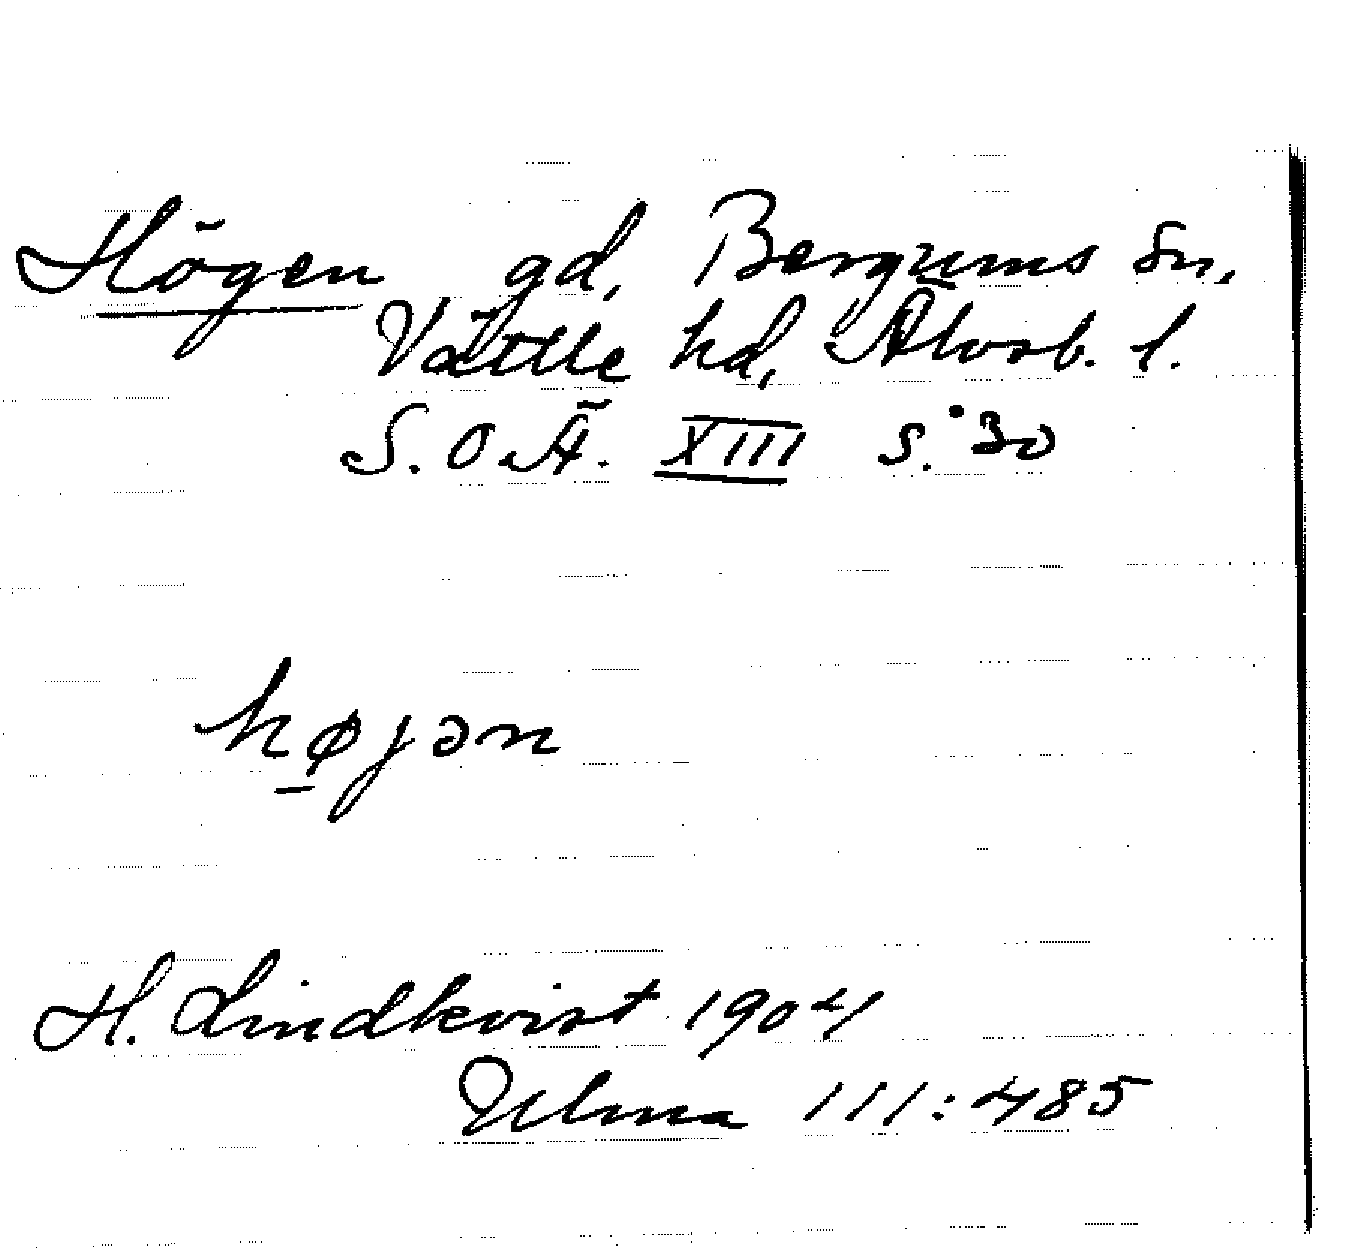 Högen gd, Bergums Sn,
Vättle hd, Älvsb. l.
S. O Ä. XIII s. 30
højən
H. Lindkvist 1904
Ulma 111:485